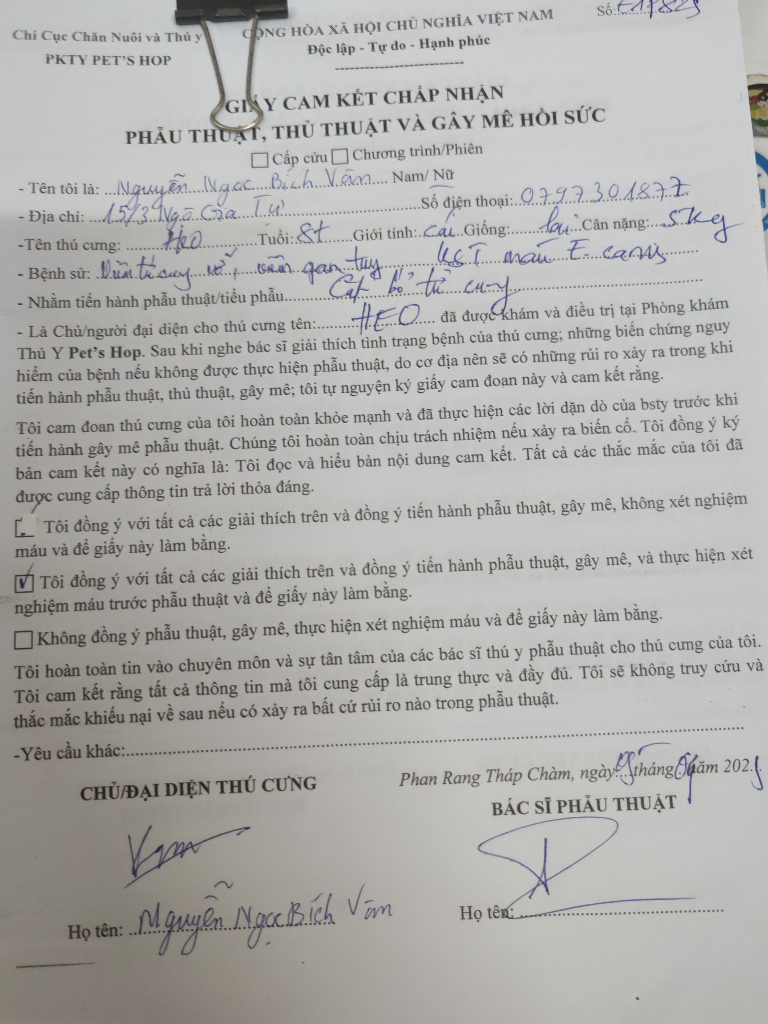 Chi Cục Chăn Nuôi và Thú y
PKTY PET'S HOP
CỘNG HÒA XÃ HỘI CHỦ NGHĨA VIỆT NAM
Độc lập - Tự do - Hạnh phúc
Số:
GIẤY CAM KẾT CHẤP NHẬN
PHẪU THUẬT, THỦ THUẬT VÀ GÂY MÊ HỒI SỨC
Cấp cứu Chương trình/Phiên
- Tên tôi là: Nguyễn Ngọc Bích Vân Nam/ Nữ
- Địa chỉ: 15/3 Ngô Gia Tự Số điện thoại: 0797301877
-Tên thú cưng: Heo Tuổi: 8t Giới tính: cái Giống: lai Cân nặng: 5kg
- Bệnh sử: Viêm tử cung vỡ, viêm gan tụy KST máu E. canis
- Nhằm tiến hành phẫu thuật/tiểu phẫu Cắt bỏ tử cung
- Là Chủ/người đại diện cho thú cưng tên: HEO đã được khám và điều trị tại Phòng khám
Thú Y Pet's Hop. Sau khi nghe bác sĩ giải thích tình trạng bệnh của thú cưng; những biến chứng nguy
hiểm của bệnh nếu không được thực hiện phẫu thuật, do cơ địa nên sẽ có những rủi ro xảy ra trong khi
tiến hành phẫu thuật, thủ thuật, gây mê; tôi tự nguyện ký giấy cam đoan này và cam kết rằng.
Tôi cam đoan thú cưng của tôi hoàn toàn khỏe mạnh và đã thực hiện các lời dặn dò của bsty trước khi
tiến hành gây mê phẫu thuật. Chúng tôi hoàn toàn chịu trách nhiệm nếu xảy ra biến cố. Tôi đồng ý ký
bản cam kết này có nghĩa là: Tôi đọc và hiểu bản nội dung cam kết. Tất cả các thắc mắc của tôi đã
được cung cấp thông tin trả lời thỏa đáng.
Tôi đồng ý với tất cả các giải thích trên và đồng ý tiến hành phẫu thuật, gây mê, không xét nghiệm
máu và để giấy này làm bằng.
Tôi đồng ý với tất cả các giải thích trên và đồng ý tiến hành phẫu thuật, gây mê, và thực hiện xét
nghiệm máu trước phẫu thuật và để giấy này làm bằng.
Không đồng ý phẫu thuật, gây mê, thực hiện xét nghiệm máu và để giấy này làm bằng.
Tôi hoàn toàn tin vào chuyên môn và sự tận tâm của các bác sĩ thú y phẫu thuật cho thú cưng của tôi.
Tôi cam kết rằng tất cả thông tin mà tôi cung cấp là trung thực và đầy đủ. Tôi sẽ không truy cứu và
thắc mắc khiếu nại về sau nếu có xảy ra bất cứ rủi ro nào trong phẫu thuật.
-Yêu cầu khác:
CHỦ/ĐẠI DIỆN THÚ CƯNG
Phan Rang Tháp Chàm, ngày tháng năm 2025
BÁC SĨ PHẪU THUẬT
Họ tên: Nguyễn Ngọc Bích Vân
Họ tên: